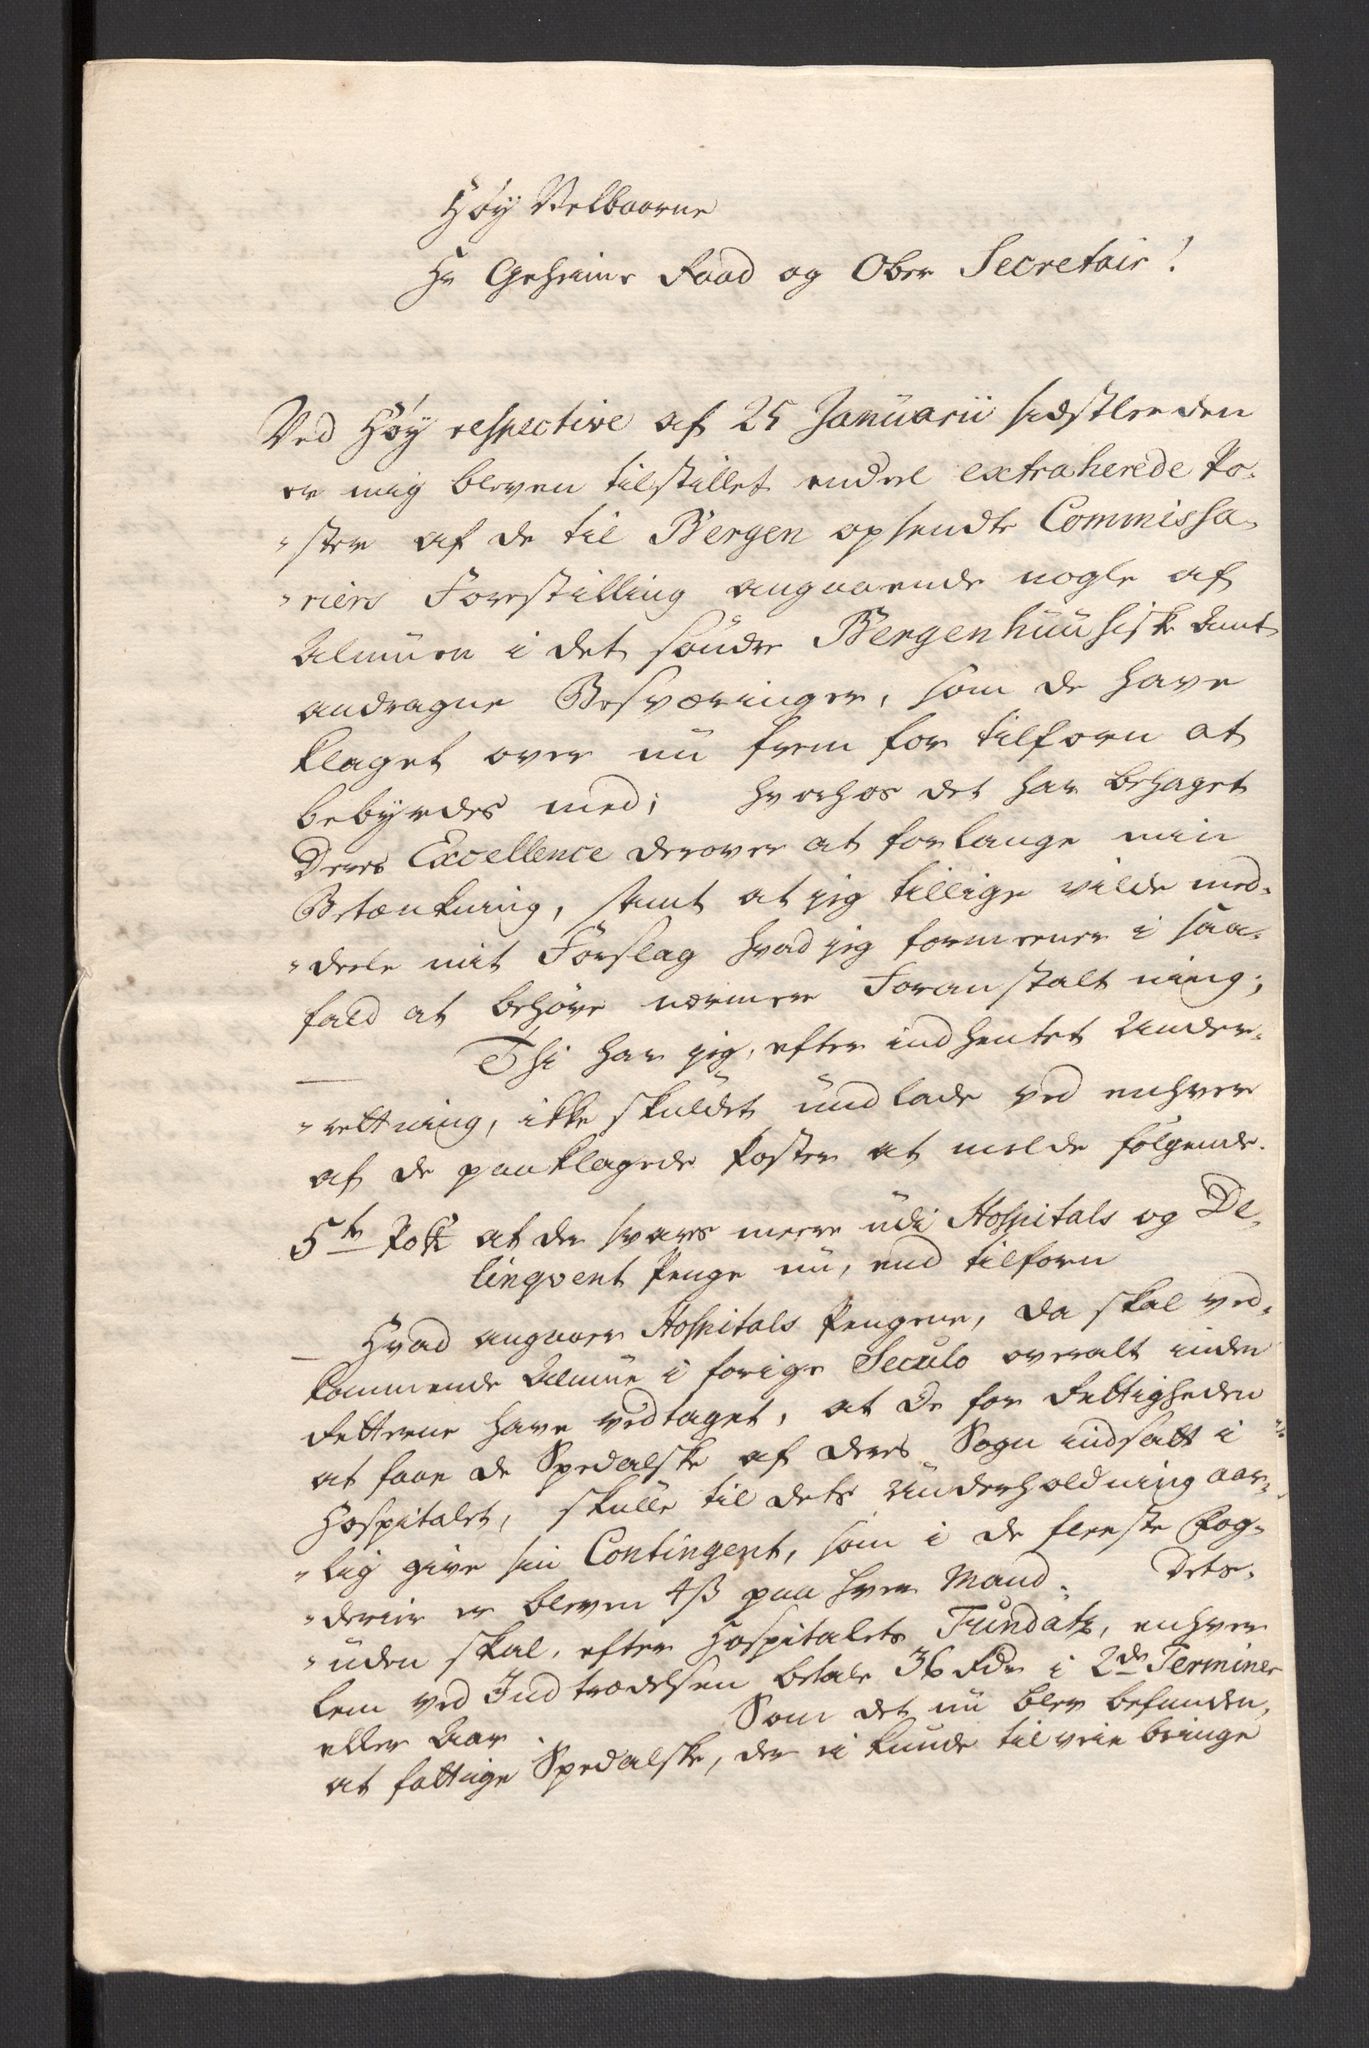 Høy Velbaarne
Hr Geheime Raad og Ober Secretair!
Ved Høy respective af 25 Januarii sidstleeden
er mig bleven tilstillet endeel extraherede Po-
ster af de til Bergen opsendte Commissa-
riers Forestilling angaaende nogle af
Almuen i det søndre Bergenhuusiske Amt
andragne Besværinger, som de have
klaget over nu frem for tilforn at
bebyrdes med; hvorhos det har behaget
Deres Excellence derover at forlange min
Betænkning, samt at jeg tillige vilde med-
deele mit Forslag hvad jeg formeener i saa-
fald at behøve nærmere Foranstaltning;
Thi har jeg, efter indhentet Under-
rettning, ikke skuldet undlade ved enhver
af de paaklagede Poster at melde følgende.
5te Post at der svares meere udi Hospitals og De-
linqvent Penge nu, end tilforn
Hvad angaaer Hospitals Pengene, da skal ved-
kommende Almue i forige Seculo overalt inden
Retterne have vedtaget, at De for Rettigheden
at faae de Spedalske af deres Sogn indsatt i
Hospitalet, skulle til dets Underholdning aar-
lig give sin Contingent, som i de fleeste Fog-
derier er bleven 4 ß paa hver Mand. Des-
uden skal, efter Hospitalets Fundatz, enhver
Lem ved Indtrædelsen betale 36 Rdr i 2de Terminer
eller Aar. Som det nu blev befunden,
at fattige Spedalske, der ei kunde tilveie bringe